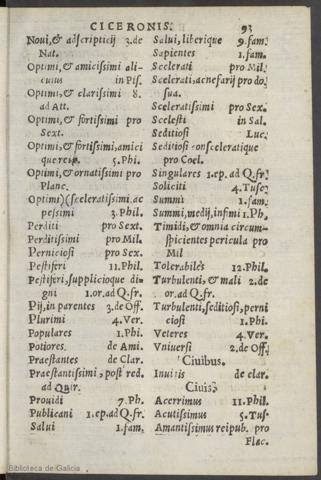 CICERONIS. 93
Noui, & adscripticij 3. de
Nat.
Optimi, & amicissimi ali-
cuius in Pis.
Optimi, & clarissimi 8.
ad Att.
Optimi, & fortissimi pro
Sext.
Optimi, & fortissimi, amici
que reip. 5. Phi.
Optimi, & ornatissimi pro
Planc.
Optimi) (sceleratissimi, ac
pessimi 3. Phil.
Perditi pro Sext.
Perditissimi pro Mil.
Perniciosi pro Sex.
Pestiferi 11. Phil.
Pestiferi, supplicioque di-
gni 1. or. ad Q. fr.
Pij, in parentes 3. de Off.
Plurimi 4. Ver.
Populares 1. Phi.
Potiores. de Ami.
Praestantes de Clar.
Praestantissimi, post red.
ad Quir.
Prouidi 7. Ph.
Publicani 1. ep. ad Q. fr.
Salui 1. fam.
Salui, liberique 9. fam.
Sapientes 1. fam.
Scelerati pro Mil.
Scelerati, ac nefarij pro do.
sua.
Sceleratissimi pro Sex.
Scelesti in Sal.
Seditiosi Luc.
Seditiosi consceleratique
pro Coel.
Singulares 1. ep. ad Q. fr.
Soliciti 4. Tusc.
Summi 1. fam.
Summi, medij, infimi 1. Ph.
Timidi, & omnia circum-
spicientes pericula pro
Mil
Tolerabiles 12. Phil.
Turbulenti, & mali 2. de
or. ad Q. fr.
Turbulenti, seditiosi, perni
ciosi 1. Phi.
Veteres 4. Ver.
Vniuersi 2. de Off.
Ciuibus.
Inuitis de clar.
Ciuis
Acerrimus 11. Phil.
Acutissimus 5. Tus.
Amantissimus reipub. pro
Flac.
Biblioteca de Galicia